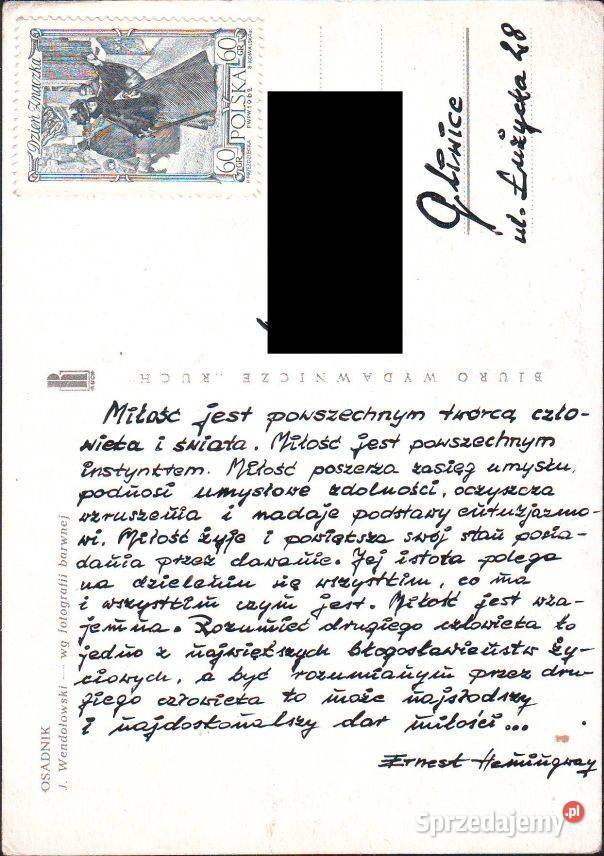 Dzień Znaczka
60 GR
POLSKA
60 GR
PWPW 1962
Gliwice
ul. Łużycka 28
BIURO WYDAWNICZE „RUCH”
RUCH
Miłość jest powszechnym twórcą czło-
wieka i świata. Miłość jest powszechnym
instynktem. Miłość poszerza zasięg umysłu,
podnosi umysłowe zdolności, oczyszcza
wzruszenia i nadaje podstawy entuzjazmo-
wi. Miłość żyje i powiększa swój stan posia-
dania przez dawanie. Jej istota polega
na dzieleniu się wszystkim, co ma
i wszystkim czym jest. Miłość jest wza-
jemna. Rozumieć drugiego człowieka to
jedno z największych błogosławieństw ży-
ciowych, a być rozumianym przez dru-
giego człowieka to może najsłodszy
i najdoskonalszy dar miłości...
Ernest Hemingway
OSADNIK
J. Wendołowski — wg fotografii barwnej
Sprzedajemy.pl